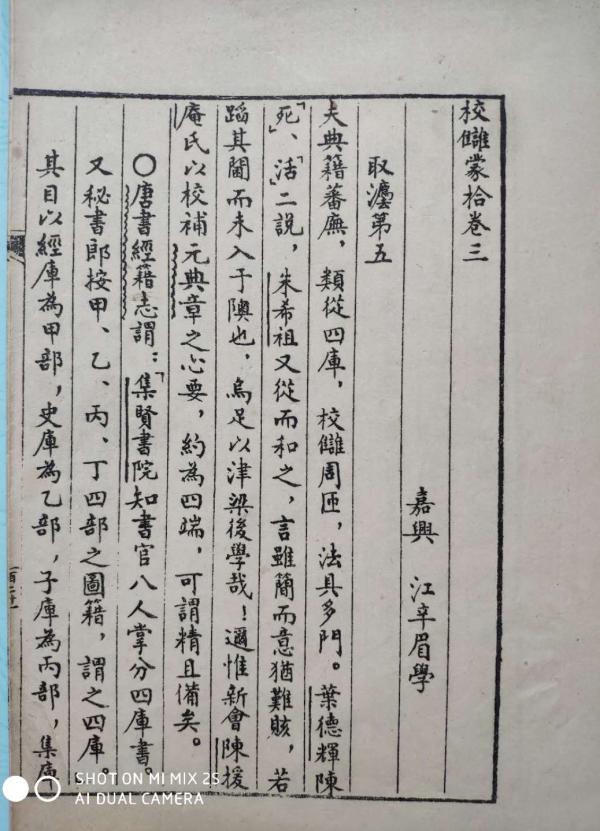 校讎蒙拾卷三
嘉興 江辛眉學
取灋第五
夫典籍蕃廡，類從四庫，校讎周匝，法具多門。葉德輝陳
「死」、「活」二説，朱希祖又從而和之，言雖簡而意猶難賅，若
蹈其閫而未入于隩也，烏足以津梁後學哉！邇惟新會陳援
庵氏以校補元典章之心要，約為四端，可謂精且備矣。
〇唐書經籍志謂：「集賢書院知書官八人掌分四庫書。
又秘書郎按甲、乙、丙、丁四部之圖籍，謂之四庫。
其目以經庫為甲部，史庫為乙部，子庫為丙部，集庫
SHOT ON MI MIX 2S
AI DUAL CAMERA